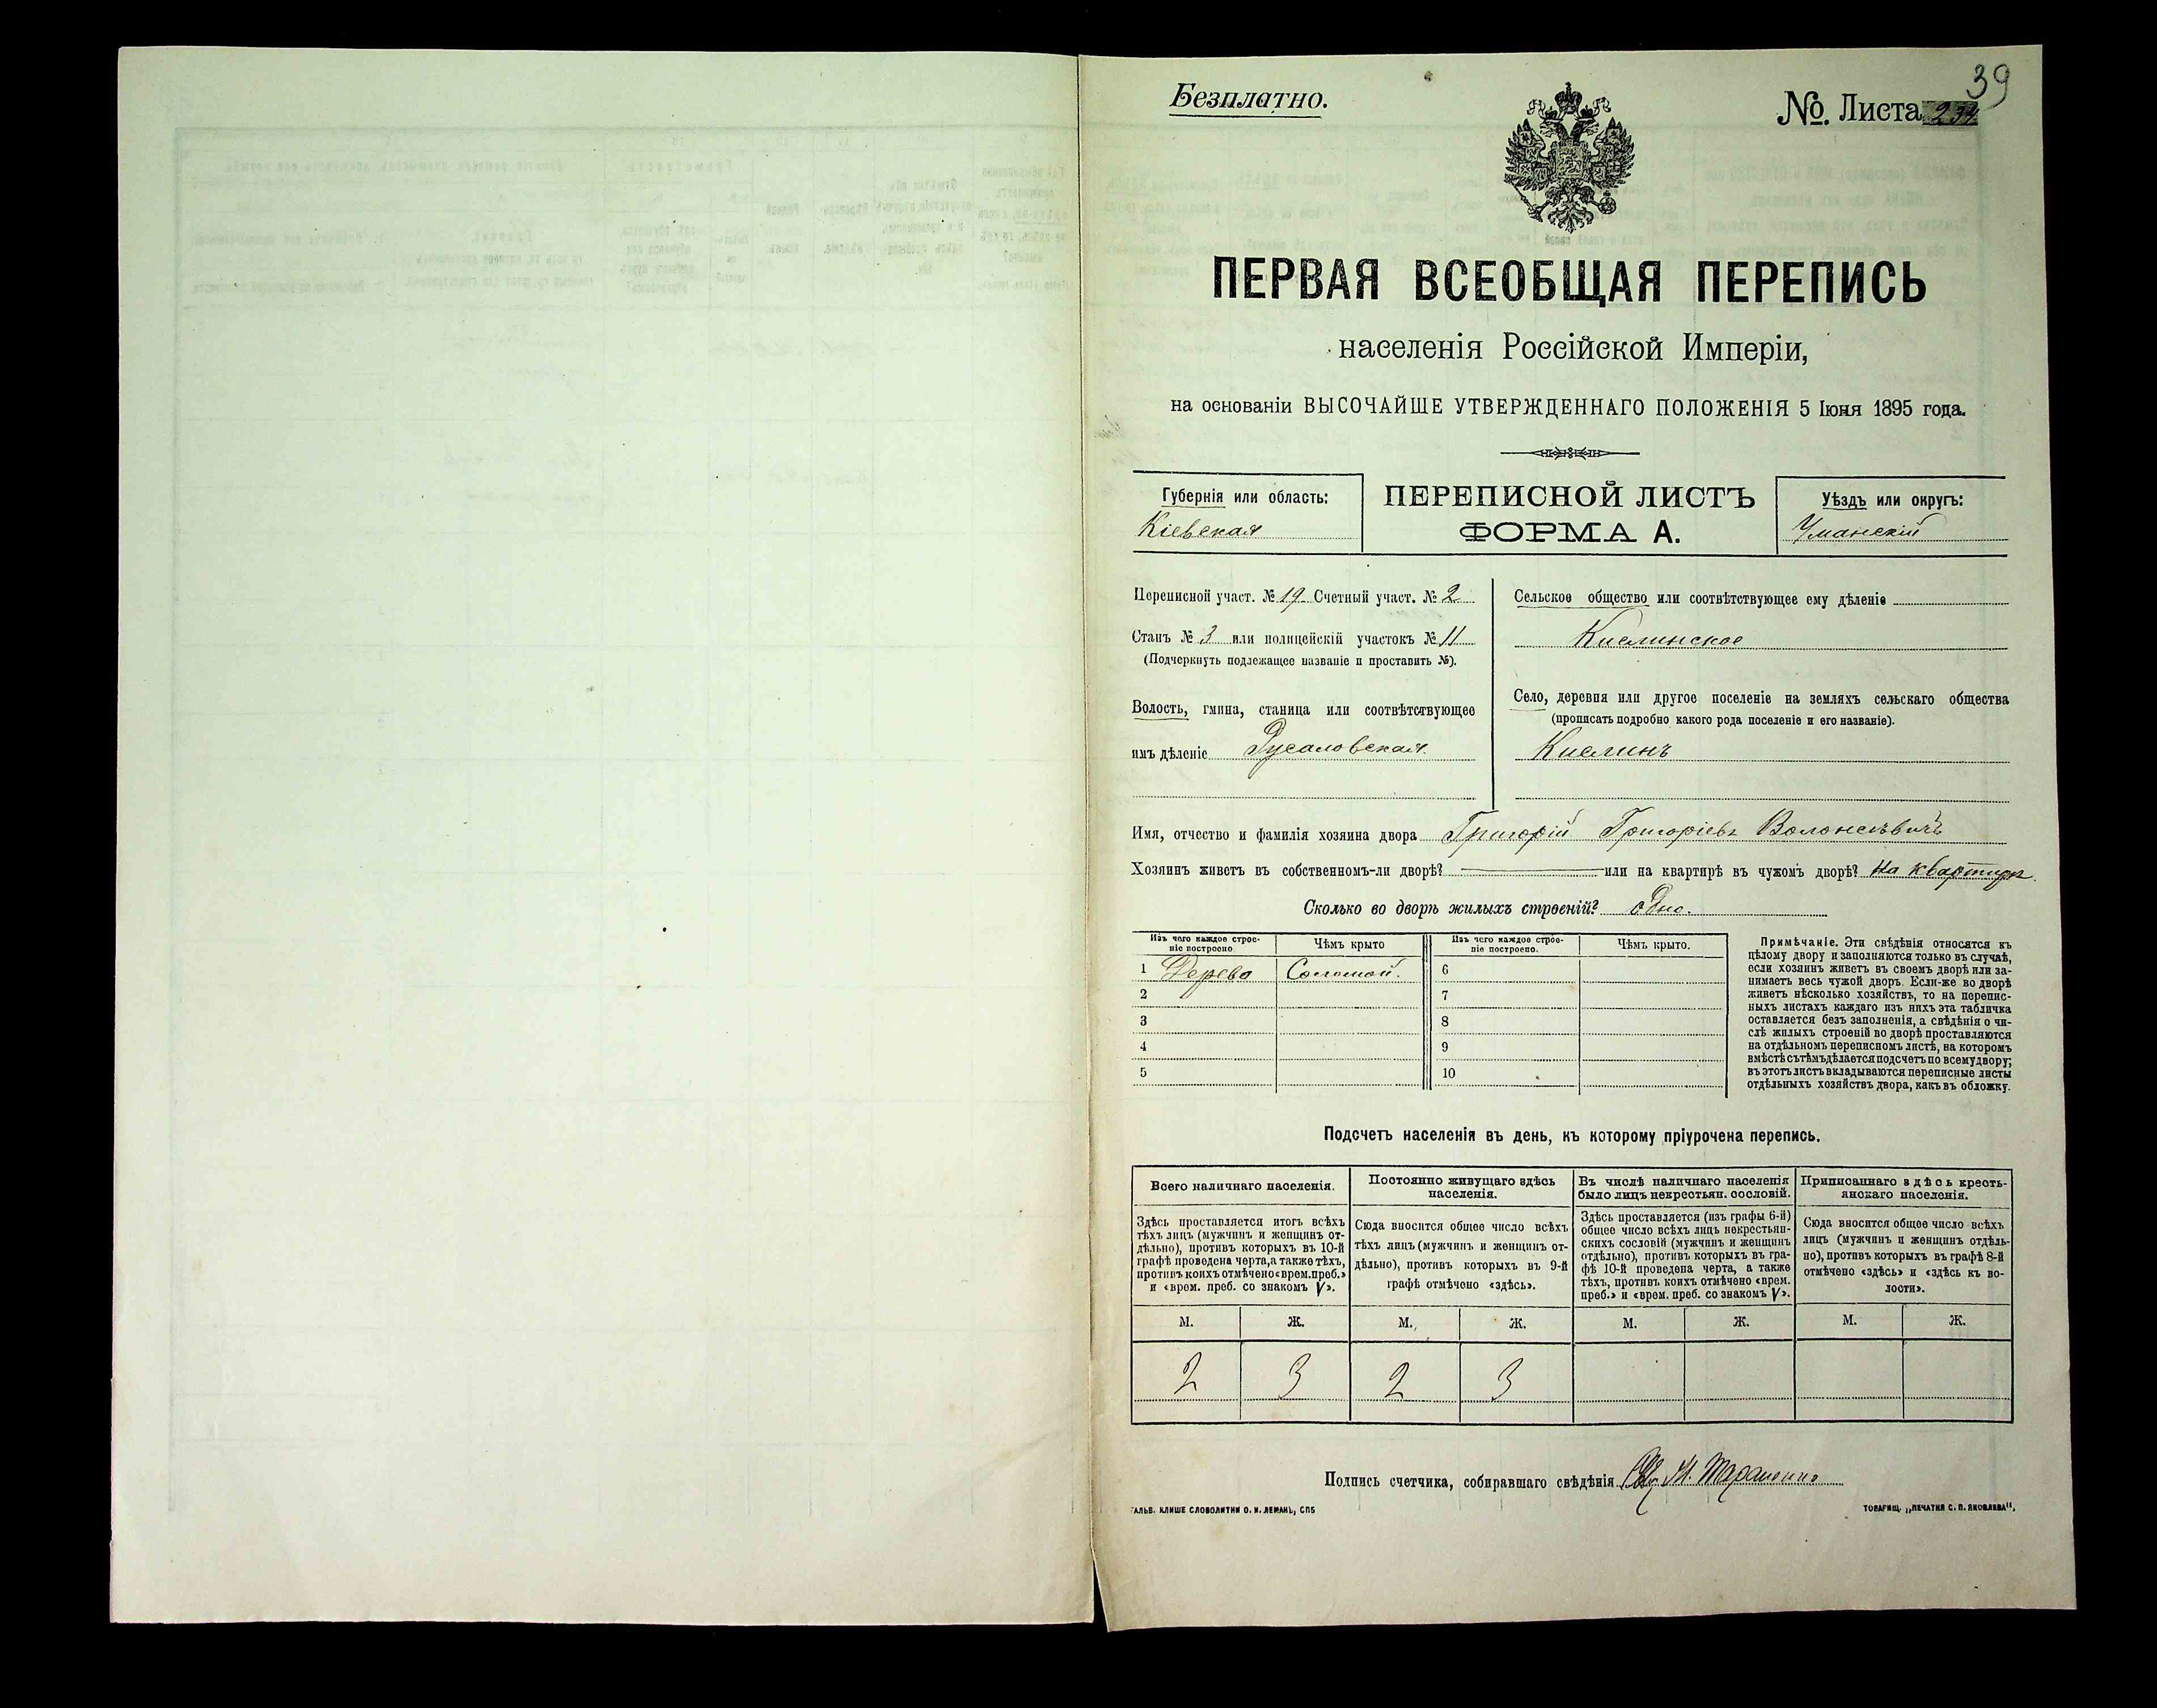 39
Безплатно.
№. Листа 234
ПЕРВАЯ ВСЕОБЩАЯ ПЕРЕПИСЬ
населенія Россійской Имперіи,
на основаніи ВЫСОЧАЙШЕ УТВЕРЖДЕННАГО ПОЛОЖЕНІЯ 5 Іюня 1895 года.
Губернія или область:
Кіевская
ПЕРЕПИСНОЙ ЛИСТЪ
ФОРМА А.
Уѣздъ или округъ:
Уманскій
Переписной участ. № 19 Счетный участ. № 2
Станъ № 3 или полицейскій участокъ № 11
(Подчеркнуть подлежащее названіе и проставить №).
Волость, гмина, станица или соотвѣтствующее
имъ дѣленіе Русаловская
Сельское общество или соотвѣтствующее ему дѣленіе
Кислинское
Село, деревня или другое поселеніе на земляхъ сельскаго общества
(прописать подробно какого рода поселеніе и его названіе).
Кислинъ
Имя, отчество и фамилія хозяина двора Григорій Григоріевъ
Хозяинъ живетъ въ собственномъ-ли дворѣ? или на квартирѣ въ чужомъ дворѣ? На квартирѣ.
Сколько во дворѣ жилыхъ строеній? одно.
Изъ чего каждое строе-
ніе построено
Чѣмъ крыто
Изъ чего каждое строе-
ніе построено.
Чѣмъ крыто.
1 Дерева Соломой. 6
2 7
3 8
4 9
5 10
Примѣчаніе. Эти свѣдѣнія относятся къ
цѣлому двору и заполняются только въ случаѣ,
если хозяинъ живетъ въ своемъ дворѣ или за-
нимаетъ весь чужой дворъ. Если-же во дворѣ
живетъ нѣсколько хозяйствъ, то на перепис-
ныхъ листахъ каждаго изъ нихъ эта табличка
оставляется безъ заполненія, а свѣдѣнія о чи-
слѣ жилыхъ строеній во дворѣ проставляются
на отдѣльномъ переписномъ листѣ, на которомъ
вмѣстѣ съ тѣмъ дѣлается подсчетъ по всему двору;
въ этотъ листъ вкладываются переписные листы
отдѣльныхъ хозяйствъ двора, какъ въ обложку.
Подсчетъ населенія въ день, къ которому пріурочена перепись.
Всего наличнаго населенія.
Здѣсь проставляется итогъ всѣхъ
тѣхъ лицъ (мужчинъ и женщинъ от-
дѣльно), противъ которыхъ въ 10-й
графѣ проведена черта, а также тѣхъ,
противъ коихъ отмѣчено «врем. преб.»
и «врем. преб. со знакомъ V».
Постоянно живущаго здѣсь
населенія.
Сюда вносится общее число всѣхъ
тѣхъ лицъ (мужчинъ и женщинъ от-
дѣльно), противъ которыхъ въ 9-й
графѣ отмѣчено «здѣсь».
Въ числѣ наличнаго населенія
было лицъ некрестьян. сословій.
Здѣсь проставляется (изъ графы 6-й)
общее число всѣхъ лицъ некрестьян-
скихъ сословій (мужчинъ и женщинъ
отдѣльно), противъ которыхъ въ гра-
фѣ 10-й проведена черта, а также
тѣхъ, противъ коихъ отмѣчено «врем.
преб.» и «врем. преб. со знакомъ V».
Приписаннаго здѣсь кресть-
янскаго населенія.
Сюда вносится общее число всѣхъ
лицъ (мужчинъ и женщинъ отдѣль-
но), противъ которыхъ въ графѣ 8-й
отмѣчено «здѣсь» и «здѣсь къ во-
лости».
М. Ж. М. Ж. М. Ж. М. Ж.
2 3 2 3
Подпись счетчика, собиравшаго свѣдѣнія
ГАЛЬВ. КЛИШЕ СЛОВОЛИТНИ О. И. ЛЕМАНЪ, СПБ
ТОВАРИЩ. „ПЕЧАТНЯ С. П. ЯКОВЛЕВА“.